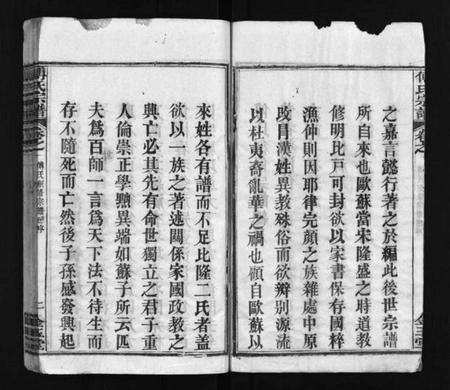 之嘉言懿行著之於編此後世宗譜
所自來也歐蘇當宋隆盛之時道教
修明比戶可封欲以家書保存國粹
漁仲則因耶律完顏之族雜處中原
改冒漢姓異教殊俗而欲辨別源流
以杜夷奇亂華之禍也顧自歐蘇以
來姓各有譜而不足比隆二氏者蓋
欲以一族之著述關係家國政教之
興亡必其先有命世獨立之君子重
人倫崇正學黜異端如蘇子所云匹
夫為百師一言為天下法不待生而
存不隨死而亡然後子孫感發興起
傅氏宗譜
卷之
二